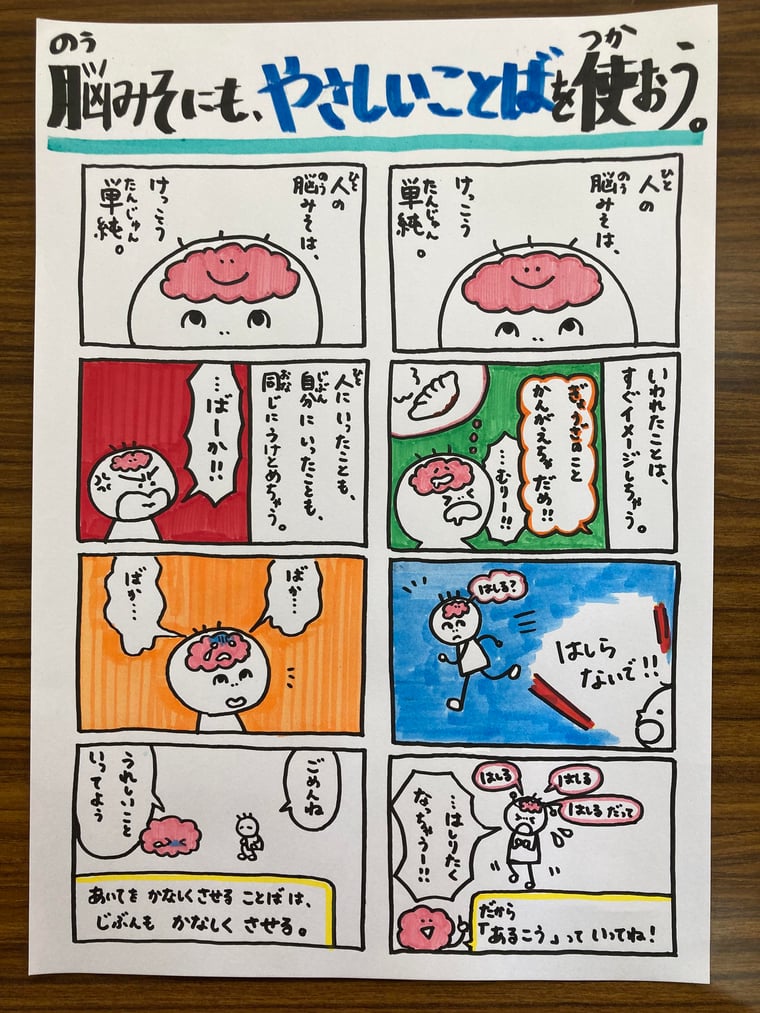 脳みそにも、やさしいことばを使おう。
のう
つか
人の
ひと
脳みそは、
のう
けっこう
単純。
たんじゅん
いわれたことは、
すぐイメージしちゃう。
ぎょうざのこと
かんがえちゃだめ!!
…むりー!!
はしる?
はしら
ないで!!
はしる
はしる
はしるだって
…はしりたく
なっちゃうー!!
だから
「あるこう」っていってね!
人の
ひと
脳みそは、
のう
けっこう
単純。
たんじゅん
人にいったことも、
ひと
自分にいったことも、
じぶん
同じにうけとめちゃう。
おな
…ばーか!!
ばか…
ばか…
ごめんね
うれしいこと
いってよう
あいてを かなしくさせる ことばは、
じぶんも かなしく させる。